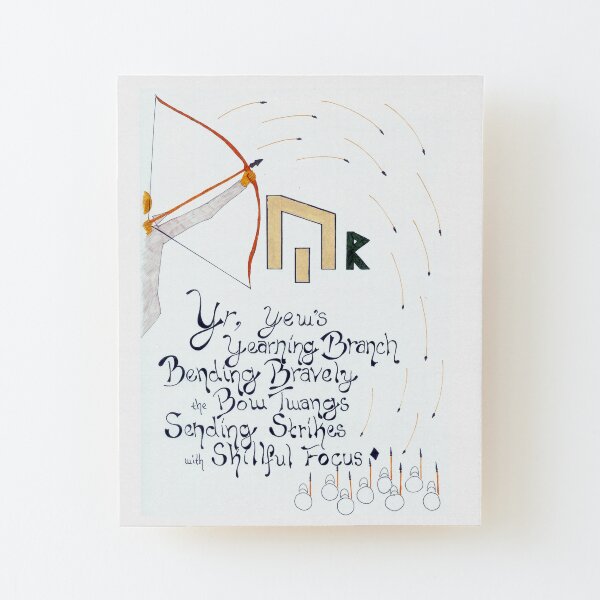 ᚣᚱ
Yr, Yew's
Yearning Branch
Bending Bravely
the Bow Twangs
Sending Strikes
with Skillful Focus